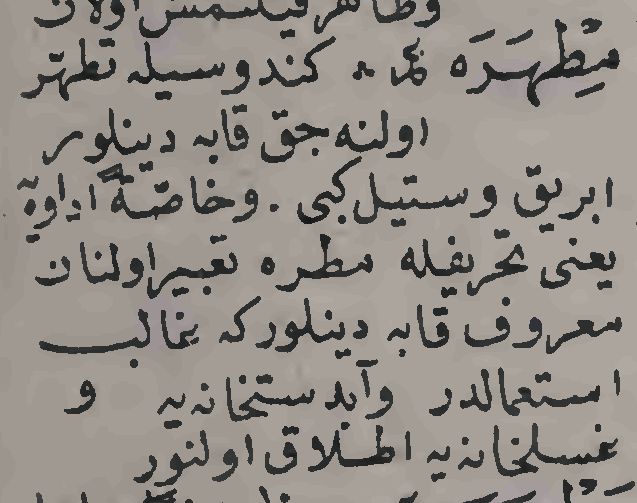 وطاهر قیلنمش اولان
مِطْهَرَه كندوسیله تطهّر
اولنه جق قابه دینلور
ابریق وستیل كبی . وخاصّةً اداوة
یعنی تحریفله مطره تعبیر اولنان
معروف قابه دینلوركه غالب
استعمالدر وآبدستخانه‌یه و
غسلخانه‌یه اطلاق اولنور